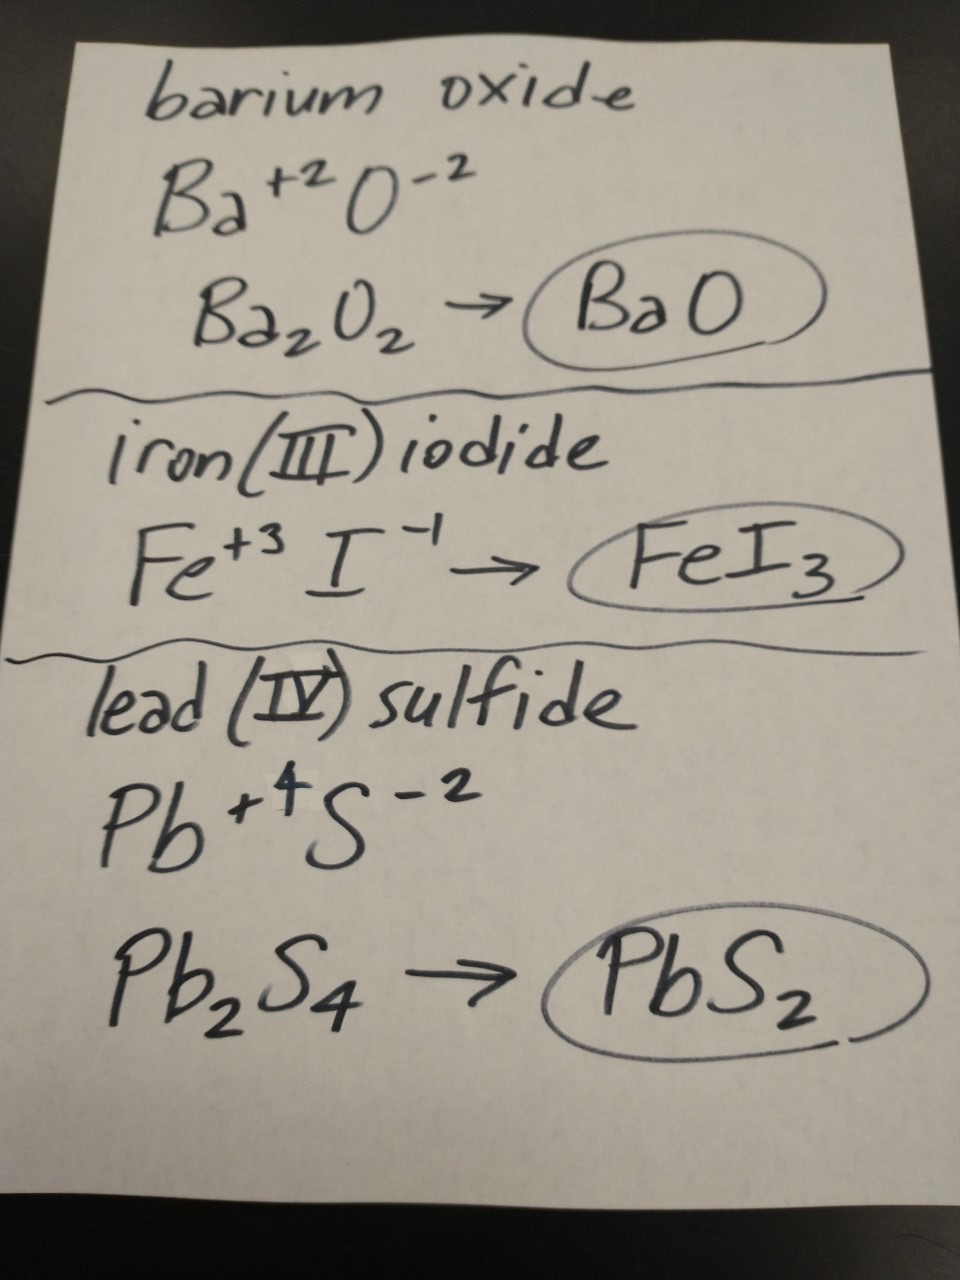 barium oxide
Ba⁺²O⁻²
Ba₂O₂ → BaO
iron(III) iodide
Fe⁺³ I⁻¹ → FeI₃
lead (IV) sulfide
Pb⁺⁴S⁻²
Pb₂S₄ → PbS₂